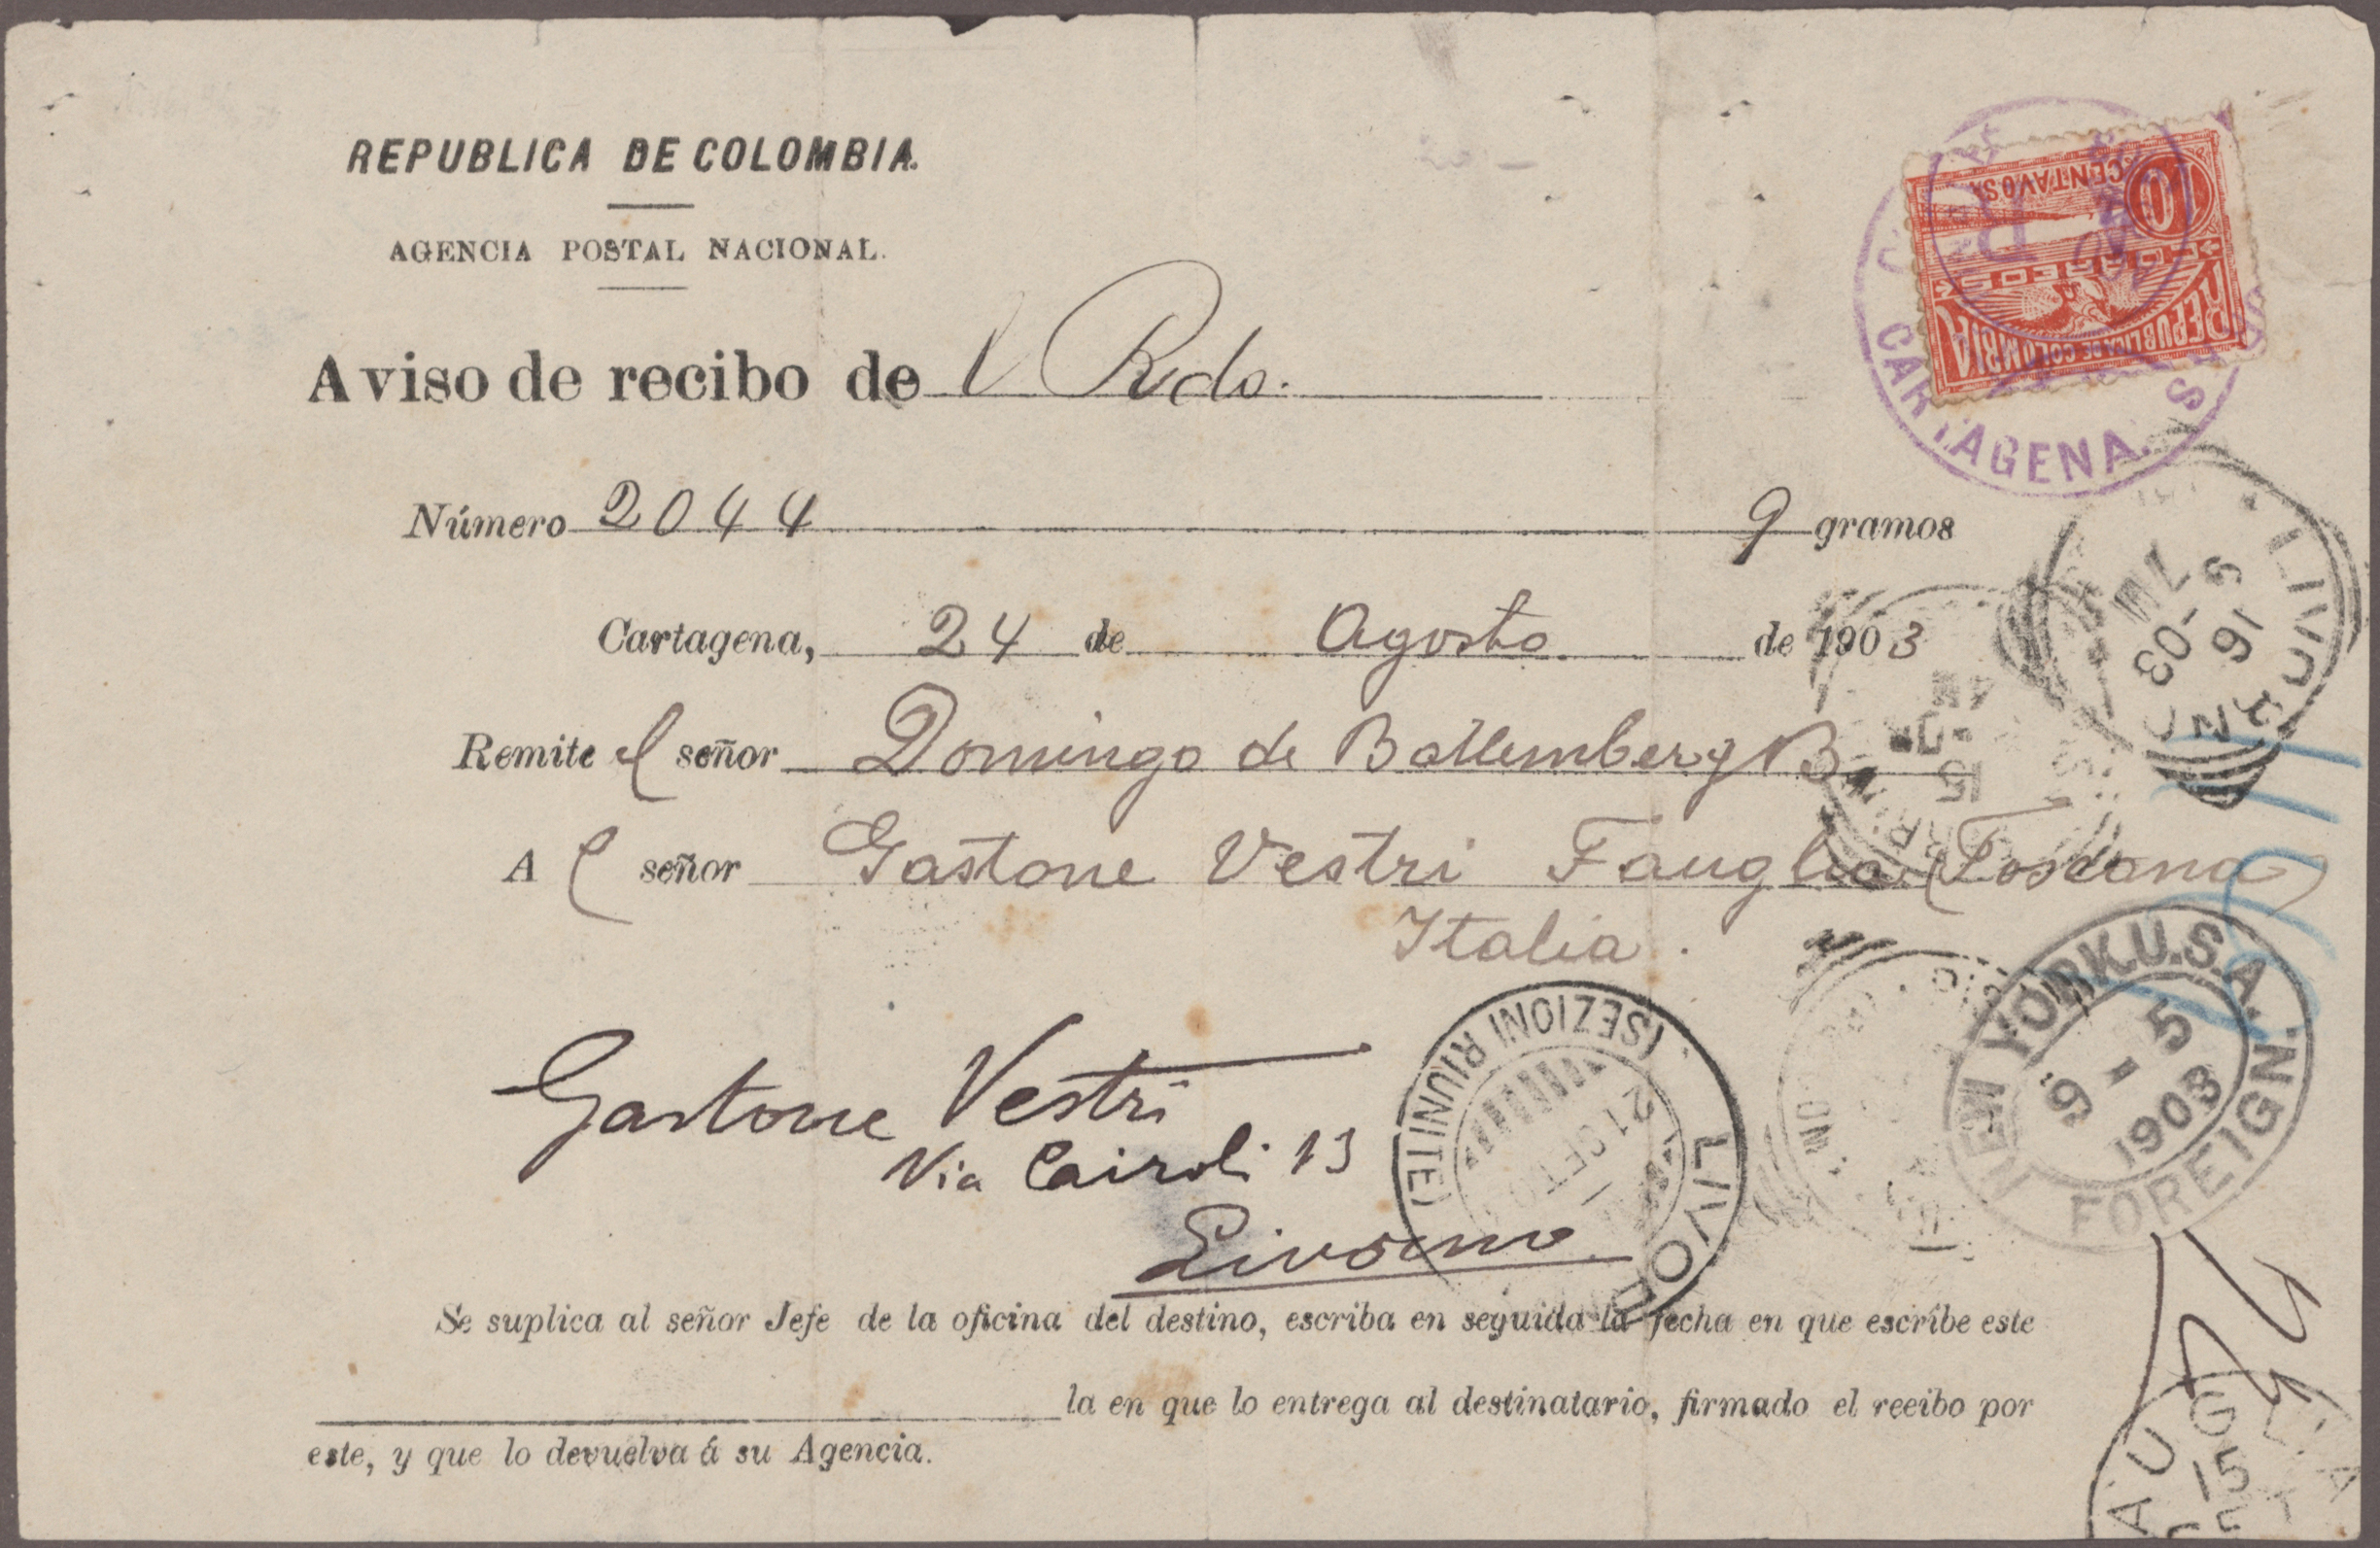 REPUBLICA DE COLOMBIA.
AGENCIA POSTAL NACIONAL.
Aviso de recibo de 1 Rdo.
Número 2044 9 gramos
Cartagena, 24 de Agosto de 1903
Remite el señor Domingo de Ballemberg B.
A l señor Gastone Vestri Fauglia (Toscana)
Italia.
Gastone Vestri
Via Cairoli 13
Livorno
Se suplica al señor Jefe de la oficina del destino, escriba en seguida la fecha en que escribe este
la en que lo entrega al destinatario, firmado el recibo por
este, y que lo devuelva á su Agencia.
10
CENTAVOS
CORREOS
REPUBLICA DE COLOMBIA
CARTAGENA.
16
9-03
7M
15
NEW YORK U.S.A.
9-5
1903
FOREIGN.
LIVOR
(SEZIONI RIUNITE)
21 SET
AUGLIA
15